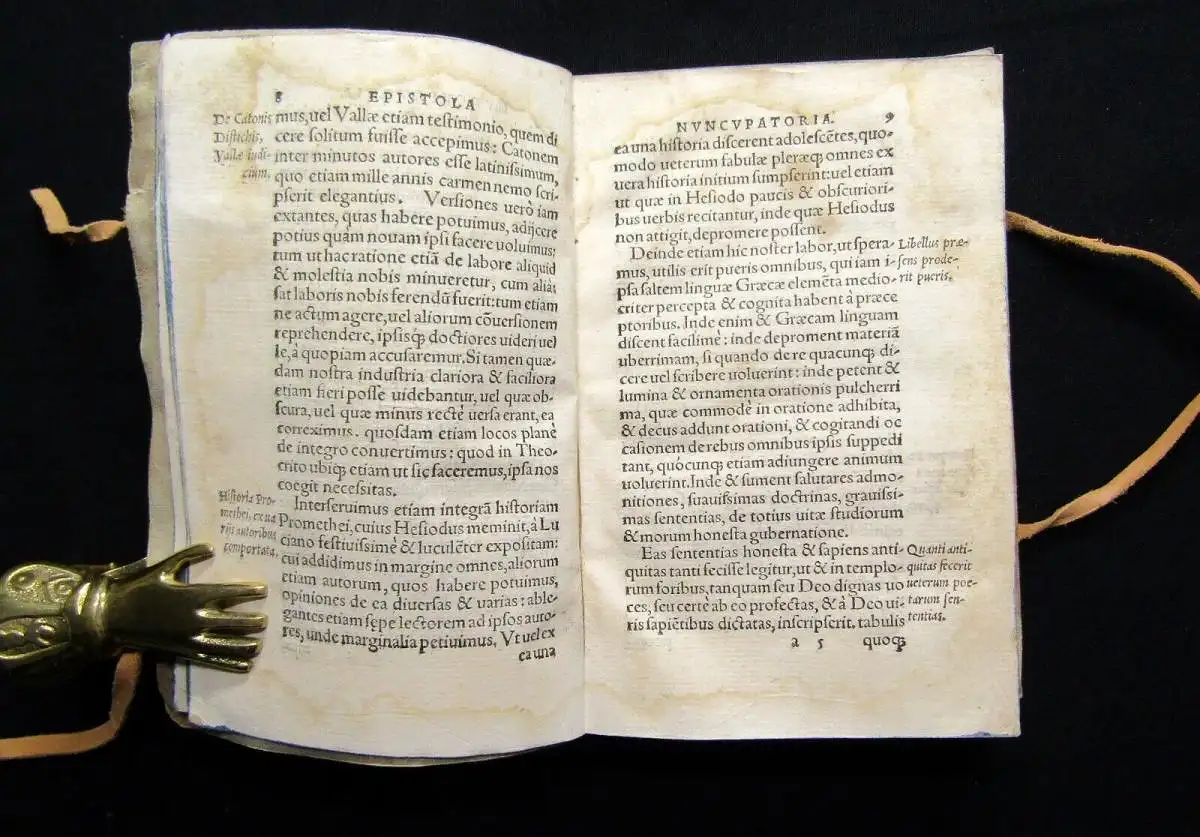 8 EPISTOLA
De Catonis
Distichis,
Vallæ iudi-
cium.
mus, uel Vallæ etiam testimonio, quem di
cere solitum fuisse accepimus: Catonem
inter minutos autores esse latinissimum,
quo etiam mille annis carmen nemo scri-
pserit elegantius. Versiones uerò iam
extantes, quas habere potuimus, adijcere
potius quàm nouam ipsi facere uoluimus:
tum ut hac ratione etiã de labore aliquid
& molestia nobis minueretur, cum aliàs
sat laboris nobis ferendũ fuerit: tum etiam
ne actum agere, uel aliorum cõuersionem
reprehendere, ipsisq; doctiores uideri uel
le, à quopiam accusaremur. Si tamen quæ-
dam nostra industria clariora & faciliora
etiam fieri posse uidebantur, uel quæ ob-
scura, uel quæ minus rectè uersa erant, ea
correximus. quosdam etiam locos planè
de integro conuertimus: quod in Theo-
crito ubiq; etiam ut sic faceremus, ipsa nos
coegit necessitas.
Historia Pro-
methei, ex ua
rijs autoribus
comportata.
Interseruimus etiam integrã historiam
Promethei, cuius Hesiodus meminit, à Lu
ciano festiuissimè & luculẽter expositam:
cui addidimus in margine omnes, aliorum
etiam autorum, quos habere potuimus,
opiniones de ea diuersas & uarias: able-
gantes etiam sępe lectorem ad ipsos auto-
res, unde marginalia petiuimus. Vt uel ex
ea una
NVNCVPATORIA. 9
ea una historia discerent adolescẽtes, quo-
modo ueterum fabulæ pleræq; omnes ex
uera historia initium sumpserint: uel etiam
ut quæ in Hesiodo paucis & obscuriori-
bus uerbis recitantur, inde quæ Hesiodus
non attigit, depromere possent.
Deinde etiam hic noster labor, ut spera-
mus, utilis erit pueris omnibus, qui iam i-
psa saltem linguæ Græcæ elemẽta medio-
criter percepta & cognita habent à præce
ptoribus. Inde enim & Græcam linguam
discent facilimè: inde deproment materiã
uberrimam, si quando de re quacunq; di-
cere uel scribere uoluerint: inde petent &
lumina & ornamenta orationis pulcherri
ma, quæ commodè in oratione adhibita,
& decus addunt orationi, & cogitandi oc
casionem de rebus omnibus ipsis suppedi
tant, quòcunq; etiam adiungere animum
uoluerint. Inde & sument salutares admo-
nitiones, suauissimas doctrinas, grauissi-
mas sententias, de totius uitæ studiorum
& morum honesta gubernatione.
Libellus præ-
sens prode-
rit pueris.
Eas sententias honesta & sapiens anti-
quitas tanti fecisse legitur, ut & in templo-
rum foribus, tanquam seu Deo dignas uo
ces, seu certè ab eo profectas, & à Deo ui-
ris sapiẽtibus dictatas, inscripserit. tabulis
Quanti anti-
quitas fecerit
ueterum poe-
tarum sen-
tentias.
a 5 quoq;